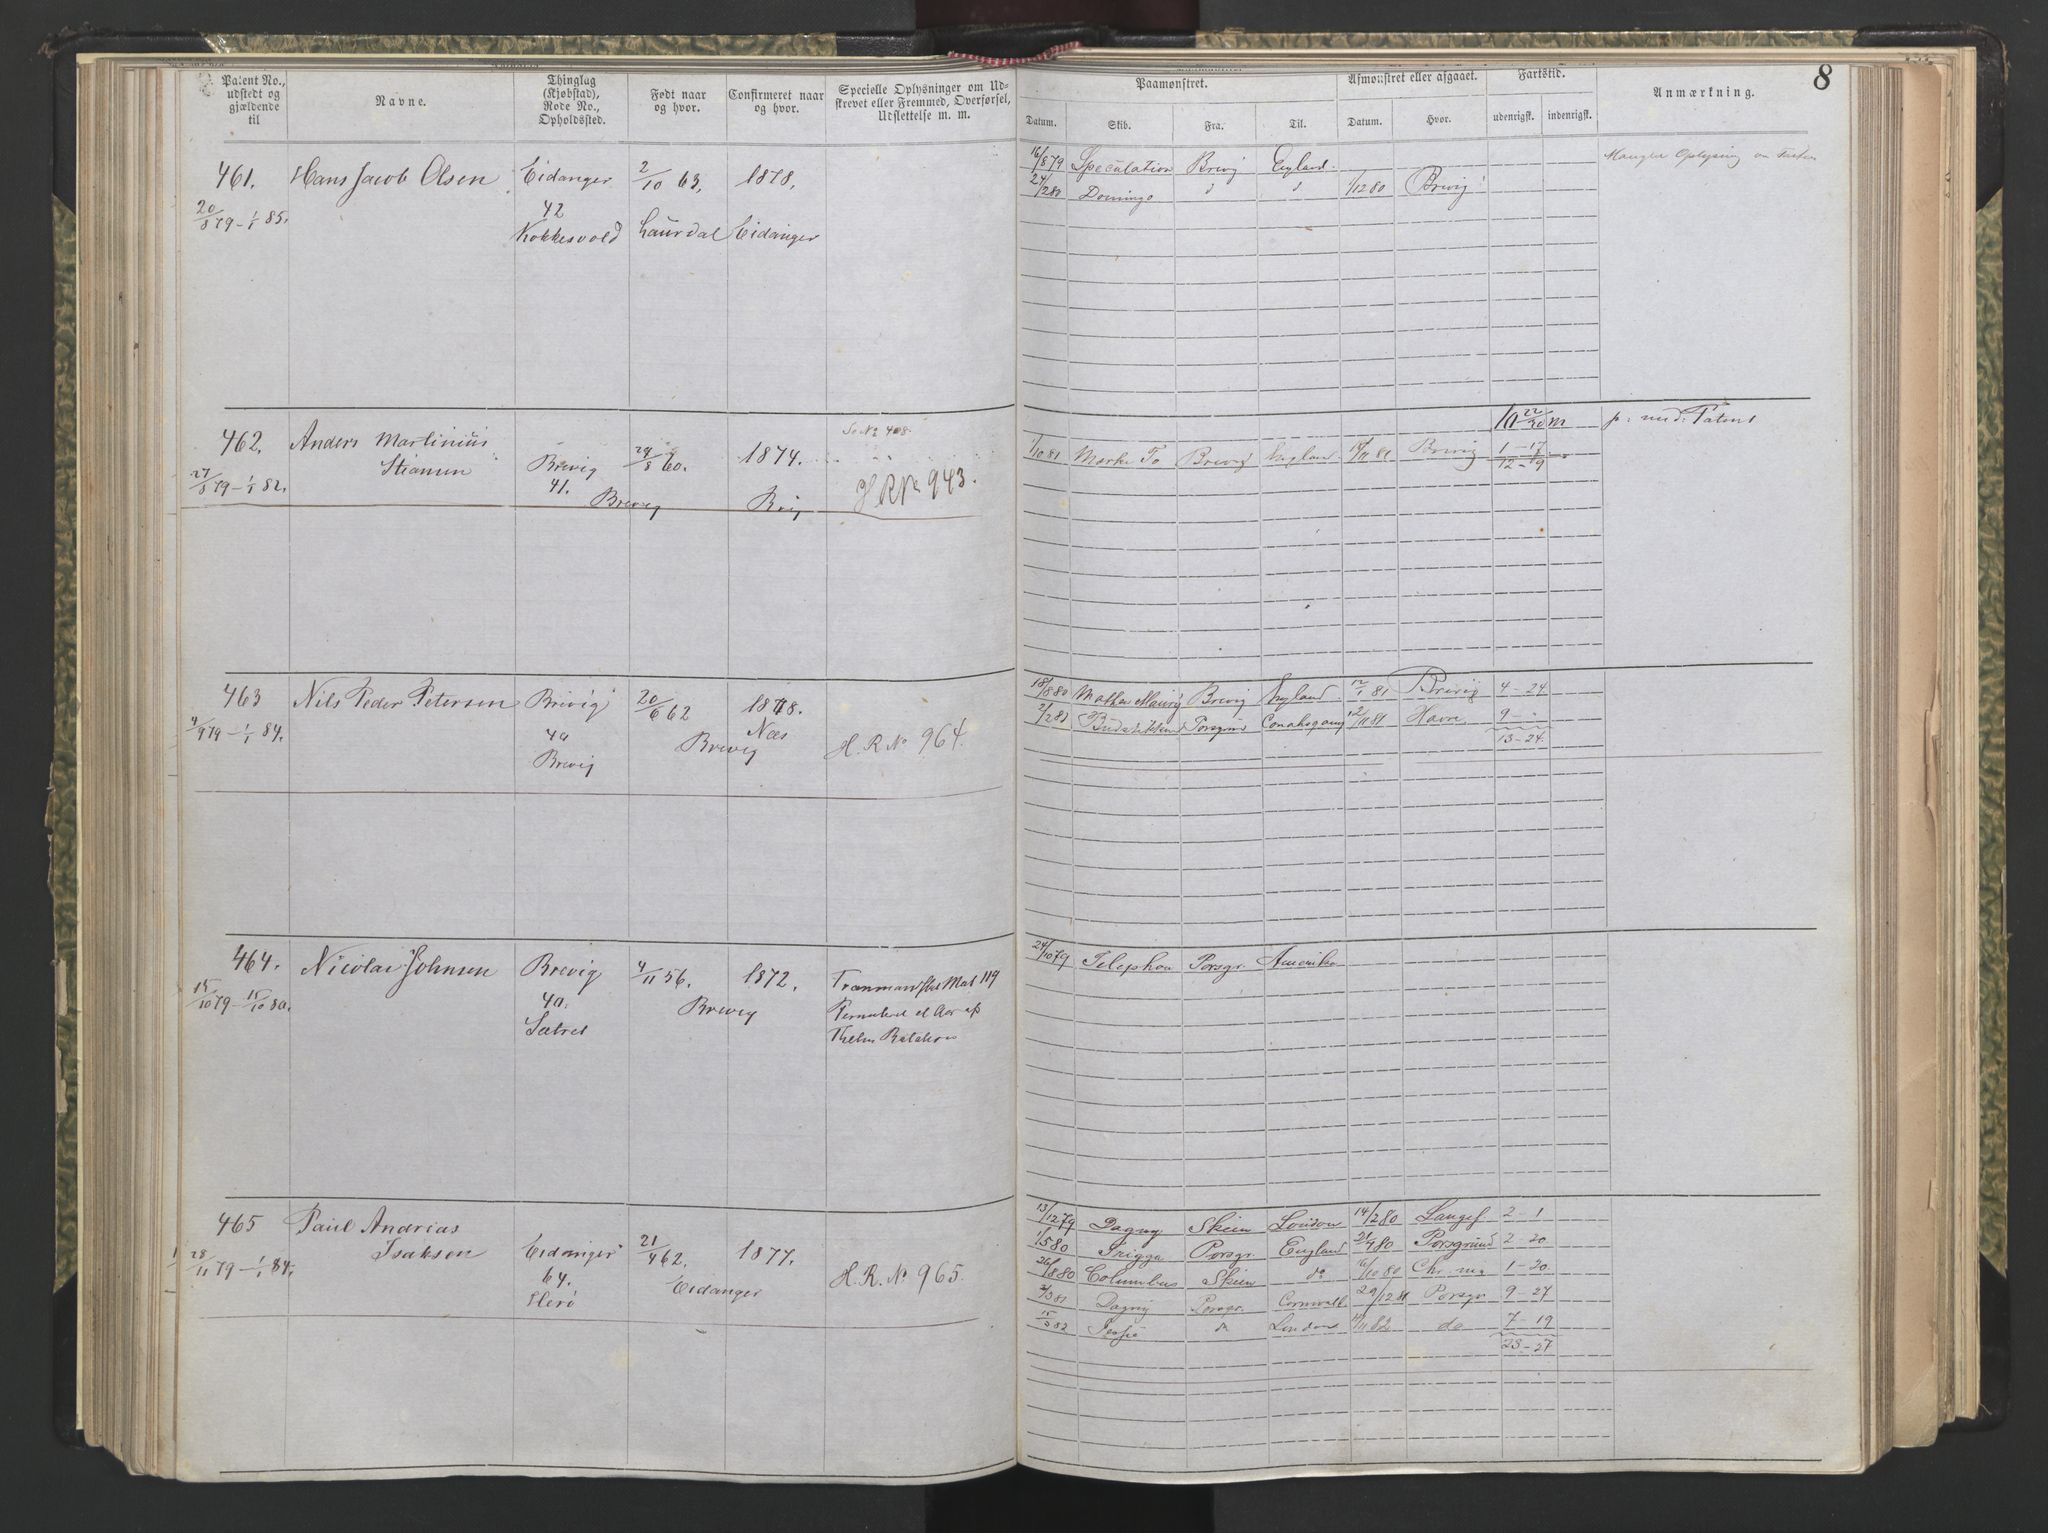 8
Patent No., udstedt og gjældende til
Navne.
Thinglag (Kjøbstad), Rode No., Opholdssted.
Født naar og hvor.
Confirmeret naar og hvor.
Specielle Oplysninger om Udskrevet eller Fremmed, Overførsel, Udslettelse m. m.
Paamønstret.
Afmønstret eller afgaaet.
Fartstid.
Anmærkning.
Datum. Skib. Fra. Til. Datum. Hvor. udenrigsk. indenrigsk.
461. Hans Jacob Olsen Eidanger 2/10 63, 1878,
20/8 79 – 1/1 85. 42
Kokkesvold Laurdal Eidanger
16/8 79 Speculation Brevig England
24/2 80 Domingo 1/12 80 Brevig
Mangler Oplysning om
462. Anders Martinius 1874.
27/8 79 – 1/1 82. Brevig 29/8 60.
41. Brevig
H R No 943.
p: med: Patent
1/10 81 Brevig England Brevig 1–17
12–19
463 Nils Peder Petersen Brevig 20/6 62 1878.
4/9 79 – 1/1 84. 40 Næs
Brevig Brevig H. R. No 964.
18/8 80 Brevig England 12/1 81 Brevig 4–24
2/2 81 Porsgrund 2/11 81 Havre 9 –
13–24
464. Nicolai Johnsen Brevig 4/11 56. 1872.
15/10 79 – 15/10 80. 40. Brevig
Sætret
24/10 79 Telephon Porsgr. Amerika
465 Paul Andrias
Isaksen Eidanger 21/4 62. 1877.
28/11 79 – 1/1 84. 64. Eidanger H. R. No 965.
Herö
13/12 79 Dagny Skien London 14/2 80 Langes 2–1
1/5 80 Frigga Porsgr. England 21/7 80 Porsgrund 2–20
26/8 80 Columbus Skien do /10 80 Chr.nia 1–20
Dagny Porsgr. Cornwall 29/12 81 Porsgr 9–27
London /11 82 do 7–19
23–27